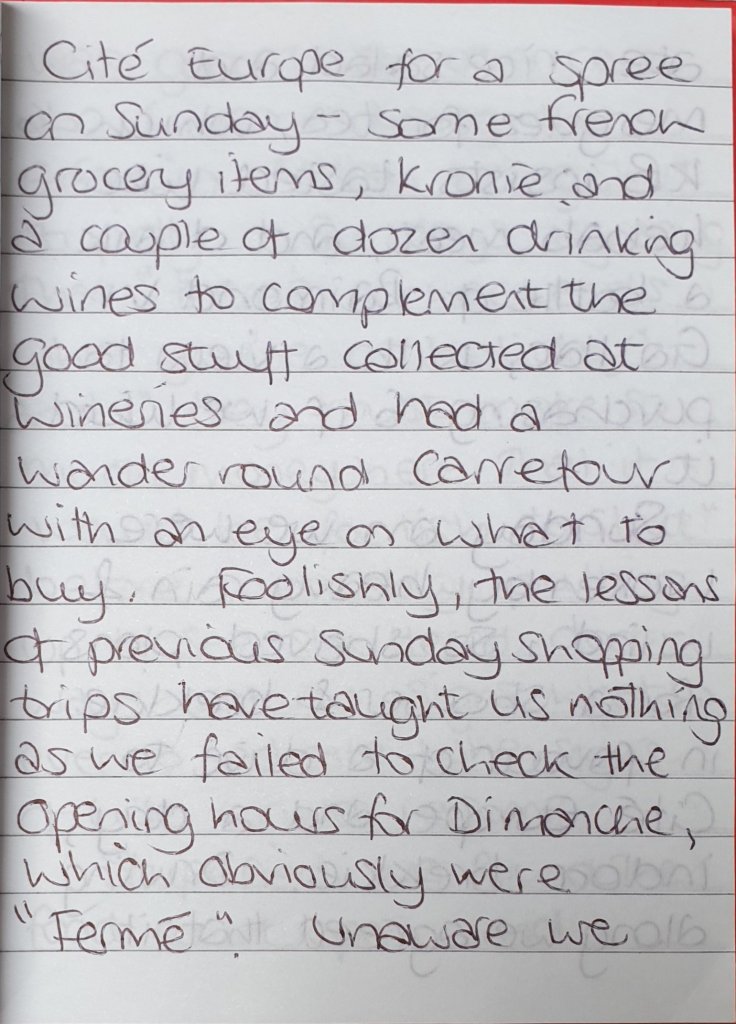 Cité Europe for a spree
on Sunday - some french
grocery items, Kronie and
a couple of dozen drinking
wines to complement the
good stuff collected at
wineries and had a
wander round Carrefour
with an eye on what to
buy. Foolishly, the lessons
of previous Sunday shopping
trips have taught us nothing
as we failed to check the
opening hours for Dimanche,
which obviously were
"Fermé". Unaware we